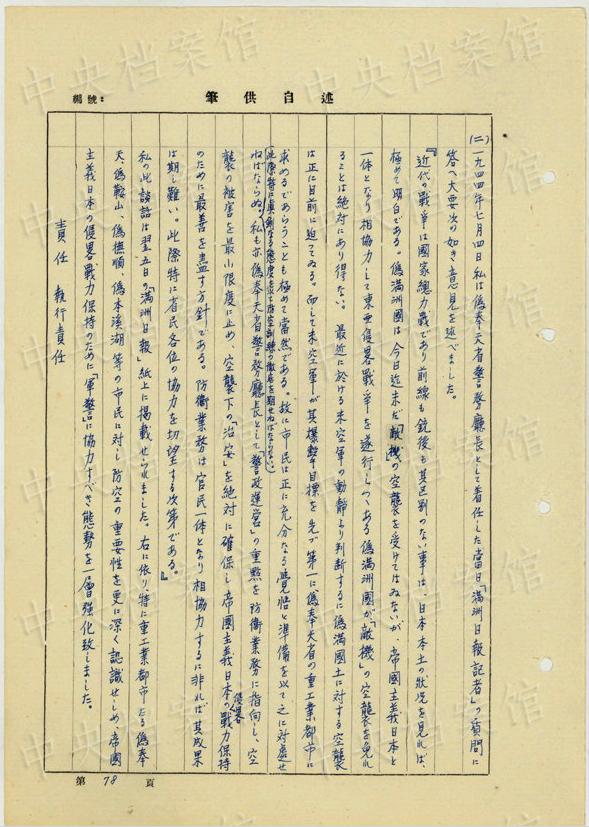 編號：
筆供自述
(二)一九四四年七月四日私は偽奉天省警務廳長として着任した當日「満洲日報記者」の質問に
答へ大要次の如き意見を述べました。
『近代の戰爭は國家總力戰であり前線も銃後も其区別のない事は、日本本土の狀況を見れば、
極めて明白である。偽満洲國は今日迄未だ「敵機」の空襲を受けてはゐないが、帝國主義日本と
一体となり相協力して東亜侵畧戰爭を遂行しつゝある偽満洲國が「敵機」の空襲を免れ
ることは絶対にあり得ない。 最近に於ける米空軍の動靜より判断するに偽満國土に対する空襲
は正に目前に迫ってゐる。而して米空軍が其爆擊目標を先づ第一に偽奉天省の重工業都市に
求めるであらうことも極めて當然である。故に市民は正に充分なる覺悟と準備を以て之に対處せ
(此際特に真剣なる態度を以て防空訓練の徹底を期せねばならない)
ねばならぬ。私も亦偽奉天省警務廳長として「警政運営」の重點を防衛業務に指向し、空
襲の被害を最小限度に止め、空襲下の「治安」を絶対に確保し帝國主義日本の侵畧戰力保持
のために最善を盡す方針である。防衛業務は官民一体となり相協力するに非れば其成果
は期し難い。此際特に省民各位の協力を切望する次第である。』
私の此談話は翌五日の「満洲日報」紙上に掲載せられました。右に依り特に重工業都市たる偽奉
天、偽鞍山、偽撫順、偽本溪湖等の市民に対し防空の重要性を更に深く認識せしめ、帝國
主義日本の侵畧戰力保持のために「軍警」に協力すべき態勢を一層强化致しました。
責任 執行責任
第 78 頁
中央档案馆